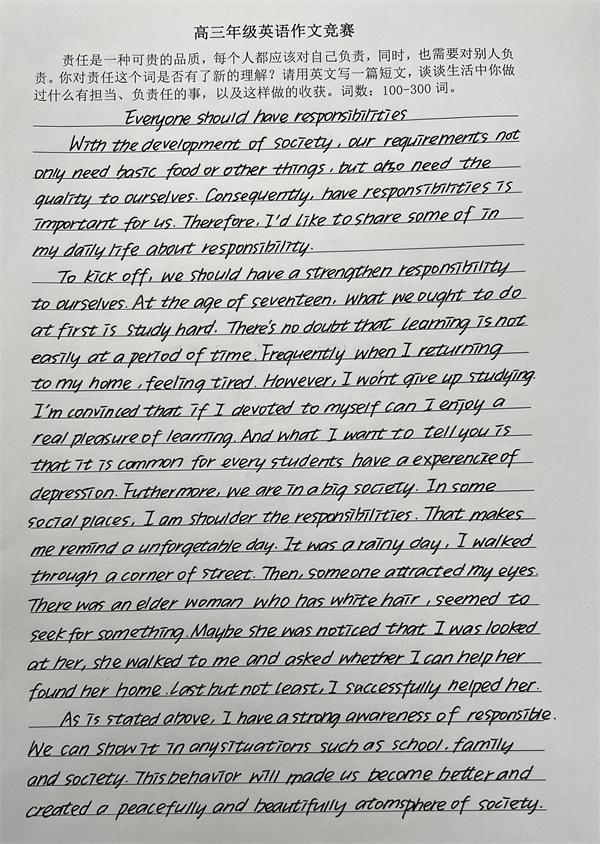 高三年级英语作文竞赛
责任是一种可贵的品质，每个人都应该对自己负责，同时，也需要对别人负
责。你对责任这个词是否有了新的理解？请用英文写一篇短文，谈谈生活中你做
过什么有担当、负责任的事，以及这样做的收获。词数：100-300 词。
Everyone should have responsibilities
With the development of society, our requirements not
only need basic food or other things, but also need the
quality to ourselves. Consequently, have responsibilities is
important for us. Therefore, I'd like to share some of in
my daily life about responsibility.
To kick off, we should have a strengthen responsibility
to ourselves. At the age of seventeen, what we ought to do
at first is study hard. There's no doubt that learning is not
easily at a period of time. Frequently when I returning
to my home, feeling tired. However, I won't give up studying.
I'm convinced that if I devoted to myself can I enjoy a
real pleasure of learning. And what I want to tell you is
that it is common for every students have a experencie of
depression. Futhermore, we are in a big society. In some
social places, I am shoulder the responsibilities. That makes
me remind a unforgetable day. It was a rainy day, I walked
through a corner of street. Then, someone attracted my eyes.
There was an elder woman who has white hair, seemed to
seek for something. Maybe she was noticed that I was looked
at her, she walked to me and asked whether I can help her
found her home. Last but not least, I successfully helped her.
As is stated above, I have a strong awareness of responsible.
We can show it in any situations such as school, family
and society. This behavior will made us become better and
created a peacefully and beautifully atomsphere of society.